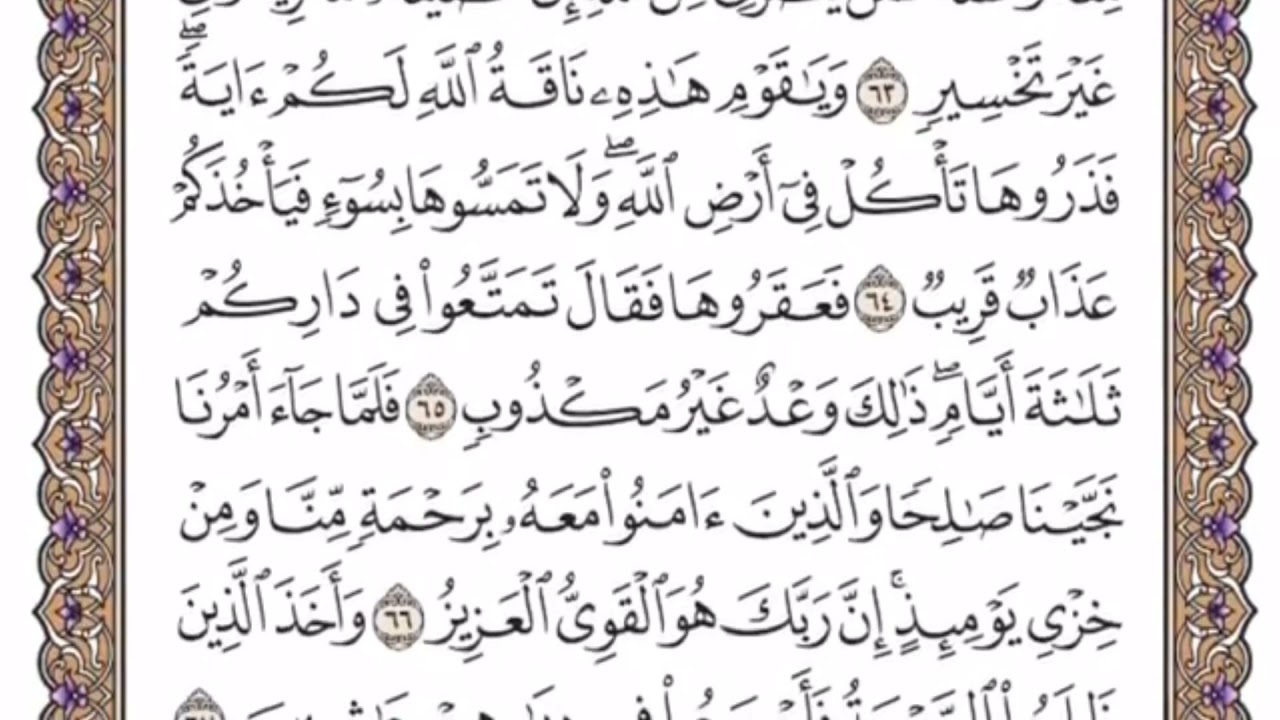 غَيْرَ تَخْسِيرٍ ٦٣ وَيَٰقَوْمِ هَٰذِهِۦ نَاقَةُ ٱللَّهِ لَكُمْ ءَايَةًۖ
فَذَرُوهَا تَأْكُلْ فِىٓ أَرْضِ ٱللَّهِۖ وَلَا تَمَسُّوهَا بِسُوٓءٍ فَيَأْخُذَكُمْ
عَذَابٌ قَرِيبٌ ٦٤ فَعَقَرُوهَا فَقَالَ تَمَتَّعُوا۟ فِى دَارِكُمْ
ثَلَٰثَةَ أَيَّامٍۖ ذَٰلِكَ وَعْدٌ غَيْرُ مَكْذُوبٍ ٦٥ فَلَمَّا جَآءَ أَمْرُنَا
نَجَّيْنَا صَٰلِحًا وَٱلَّذِينَ ءَامَنُوا۟ مَعَهُۥ بِرَحْمَةٍ مِّنَّا وَمِنْ
خِزْىِ يَوْمِئِذٍۚ إِنَّ رَبَّكَ هُوَ ٱلْقَوِىُّ ٱلْعَزِيزُ ٦٦ وَأَخَذَ ٱلَّذِينَ